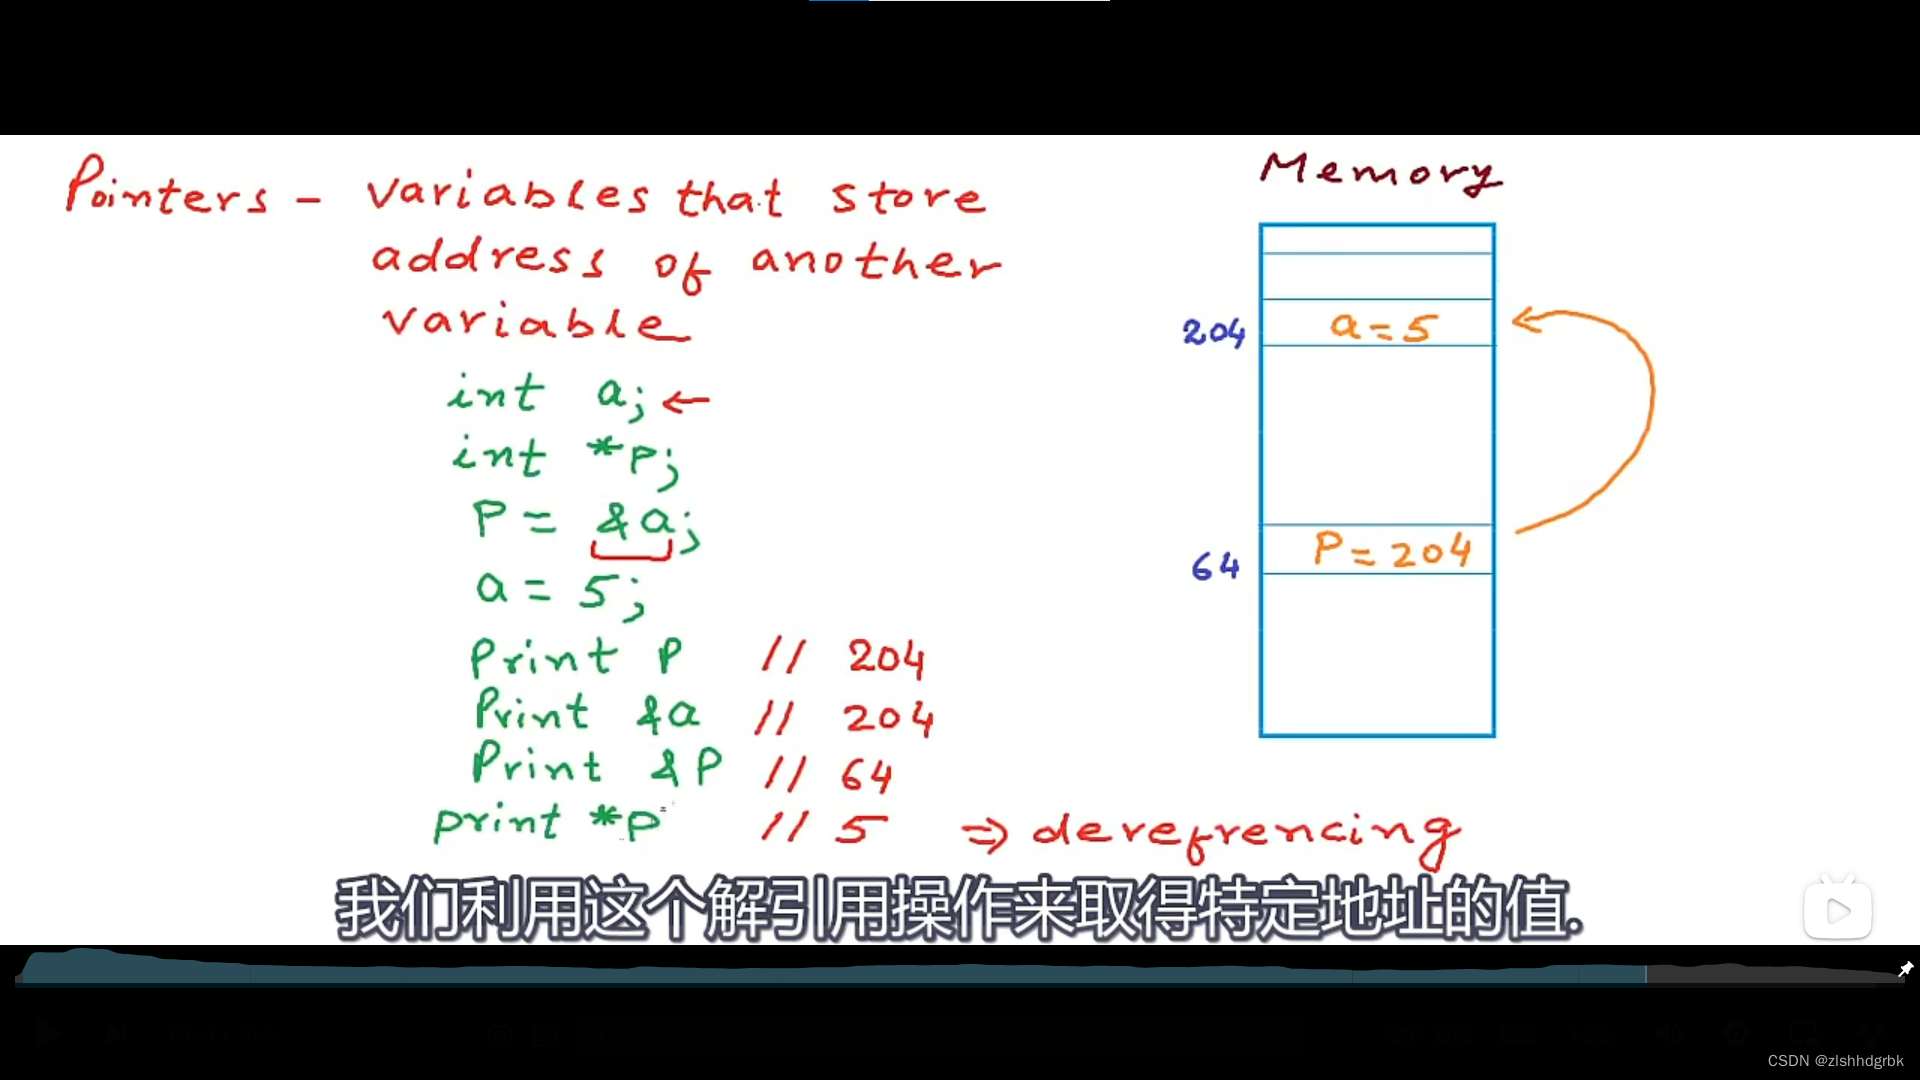 Pointers - variables that store
address of another
variable
int a; ←
int *p;
P = &a;
a = 5;
Print P // 204
Print &a // 204
Print &P // 64
print *p // 5 => derefrencing
Memory
204 a = 5
64 P = 204
我们利用这个解引用操作来取得特定地址的值.
CSDN @zlshhdgrbk